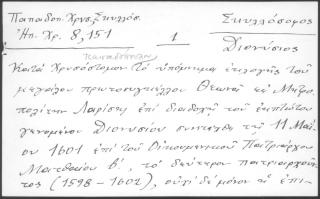 Παπαδοπ. Χρυσ. Σκυλλόσ.
Σκυλλόσοφος
Ηπ. Χρ. 8, 151
1
Διονύσιος
Κατὰ Χρυσόστομον τὸ ὑπόμνημα ἐκλογῆς τοῦ
μεγάλου πρωτοσυγκέλλου Θεωνᾶ ὡς Μητρο-
πολίτην Λαρίσης ἐπὶ διαδοχῇ τοῦ ἐκπτώτου
γενομένου Διονυσίου συνετάγη τῇ 11 Μαΐ-
ου 1601 ἐπὶ τοῦ Οἰκουμενικοῦ Πατριάρχου
Ματθαίου Β', τὸ δεύτερον πατριαρχοῦν-
τος (1598 - 1602), οὐχὶ δὲ μόνον αἱ ἐπι-